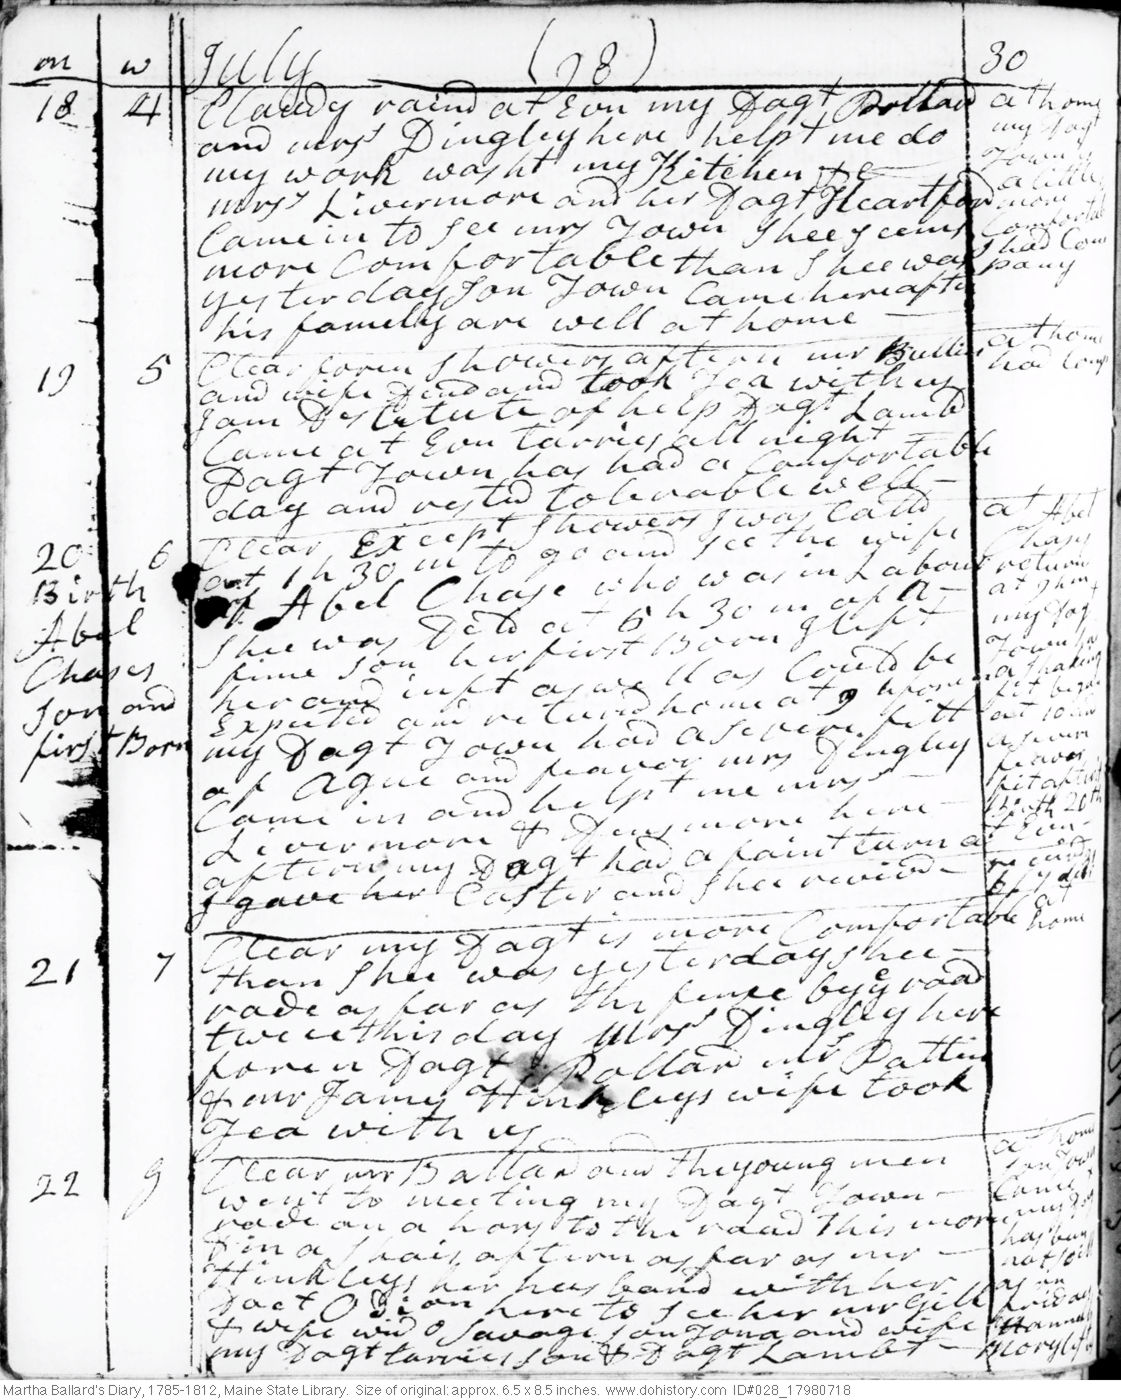 m w July (28) 30
18 4 Cloudy raind at Evn my Dagt Pollard
and mrss Dingley here help! me do
my work washt my Kitchen &c
mrss Livermore and her Dagt Heartford
Came in to See mrs Town Shee Seems
more Comfortable than Shee was
yesterday Son Town Came here aftn
his familly are well at home
at home
my Dagt
Towns
a little
more
Comfortab
had Com
pany
19 5 Clear foren Showers aftern mr Bullin
and wife Dind and took Tea with us
I am Destetute of help Dagt Lamb
Came at Evn tarries all night
Dagt Town has had a Comfortable
day and rested tolerable well
at home
had Comp
20 6 Clear Except Showers I was Calld
at 1 h 30 m to go and See the wife
of Abel Chase who was in Labour
Shee was Deld at 6 h 30 m of a
fine Son her first Born I left
her and inft as well as Could be
Expected and returnd home at 9
my Dagt Town had a severe fitt
of Ague and feaver mrs Dingley
Came in and helpt me mrs
Livermore & Densmore here
aftern my Dagt had a faint turn
I gave her Caster and Shee revivd
Birth
Abel
Chases
Son and
first Born
at Abel
Chases
return
at 9 h m
my Dagt
Town
a Shaking
fit began
at 10
a severe
feaver
fit after
Birth 20th
at Evn
recevd
21 7 Clear my Dagt is more Comfortable
than Shee was yesterday Shee
rade as far as the fence by ye road
twice this day Mrss Dingley here
foren Dagt Pollard mrs Pattin
& mr Jamy Hinkleys wife took
Tea with us
at
home
22 g Clear mr Ballard and the young men
went to meeting my Dagt Town
rade on a hors to the road this morn
& in a Shais aftern as far as mr
Hinkleys her husband with her
Dagt here to See her mr Gill
& wife wid O Savage Son Jona and wife
my Dagt tarries Son & Dagt Lambt
at home
Son Town
Came
my Dagt
has been
not so ill
as on
friday
Hannah
Martha Ballard's Diary, 1785-1812, Maine State Library. Size of original: approx. 6.5 x 8.5 inches. www.dohistory.com ID#028_17980718